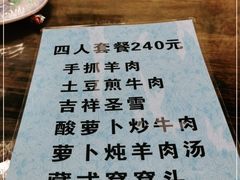 四人套餐240元
手抓羊肉
土豆煎牛肉
吉祥圣雪
酸萝卜炒牛肉
萝卜炖羊肉汤
藏式窝窝头